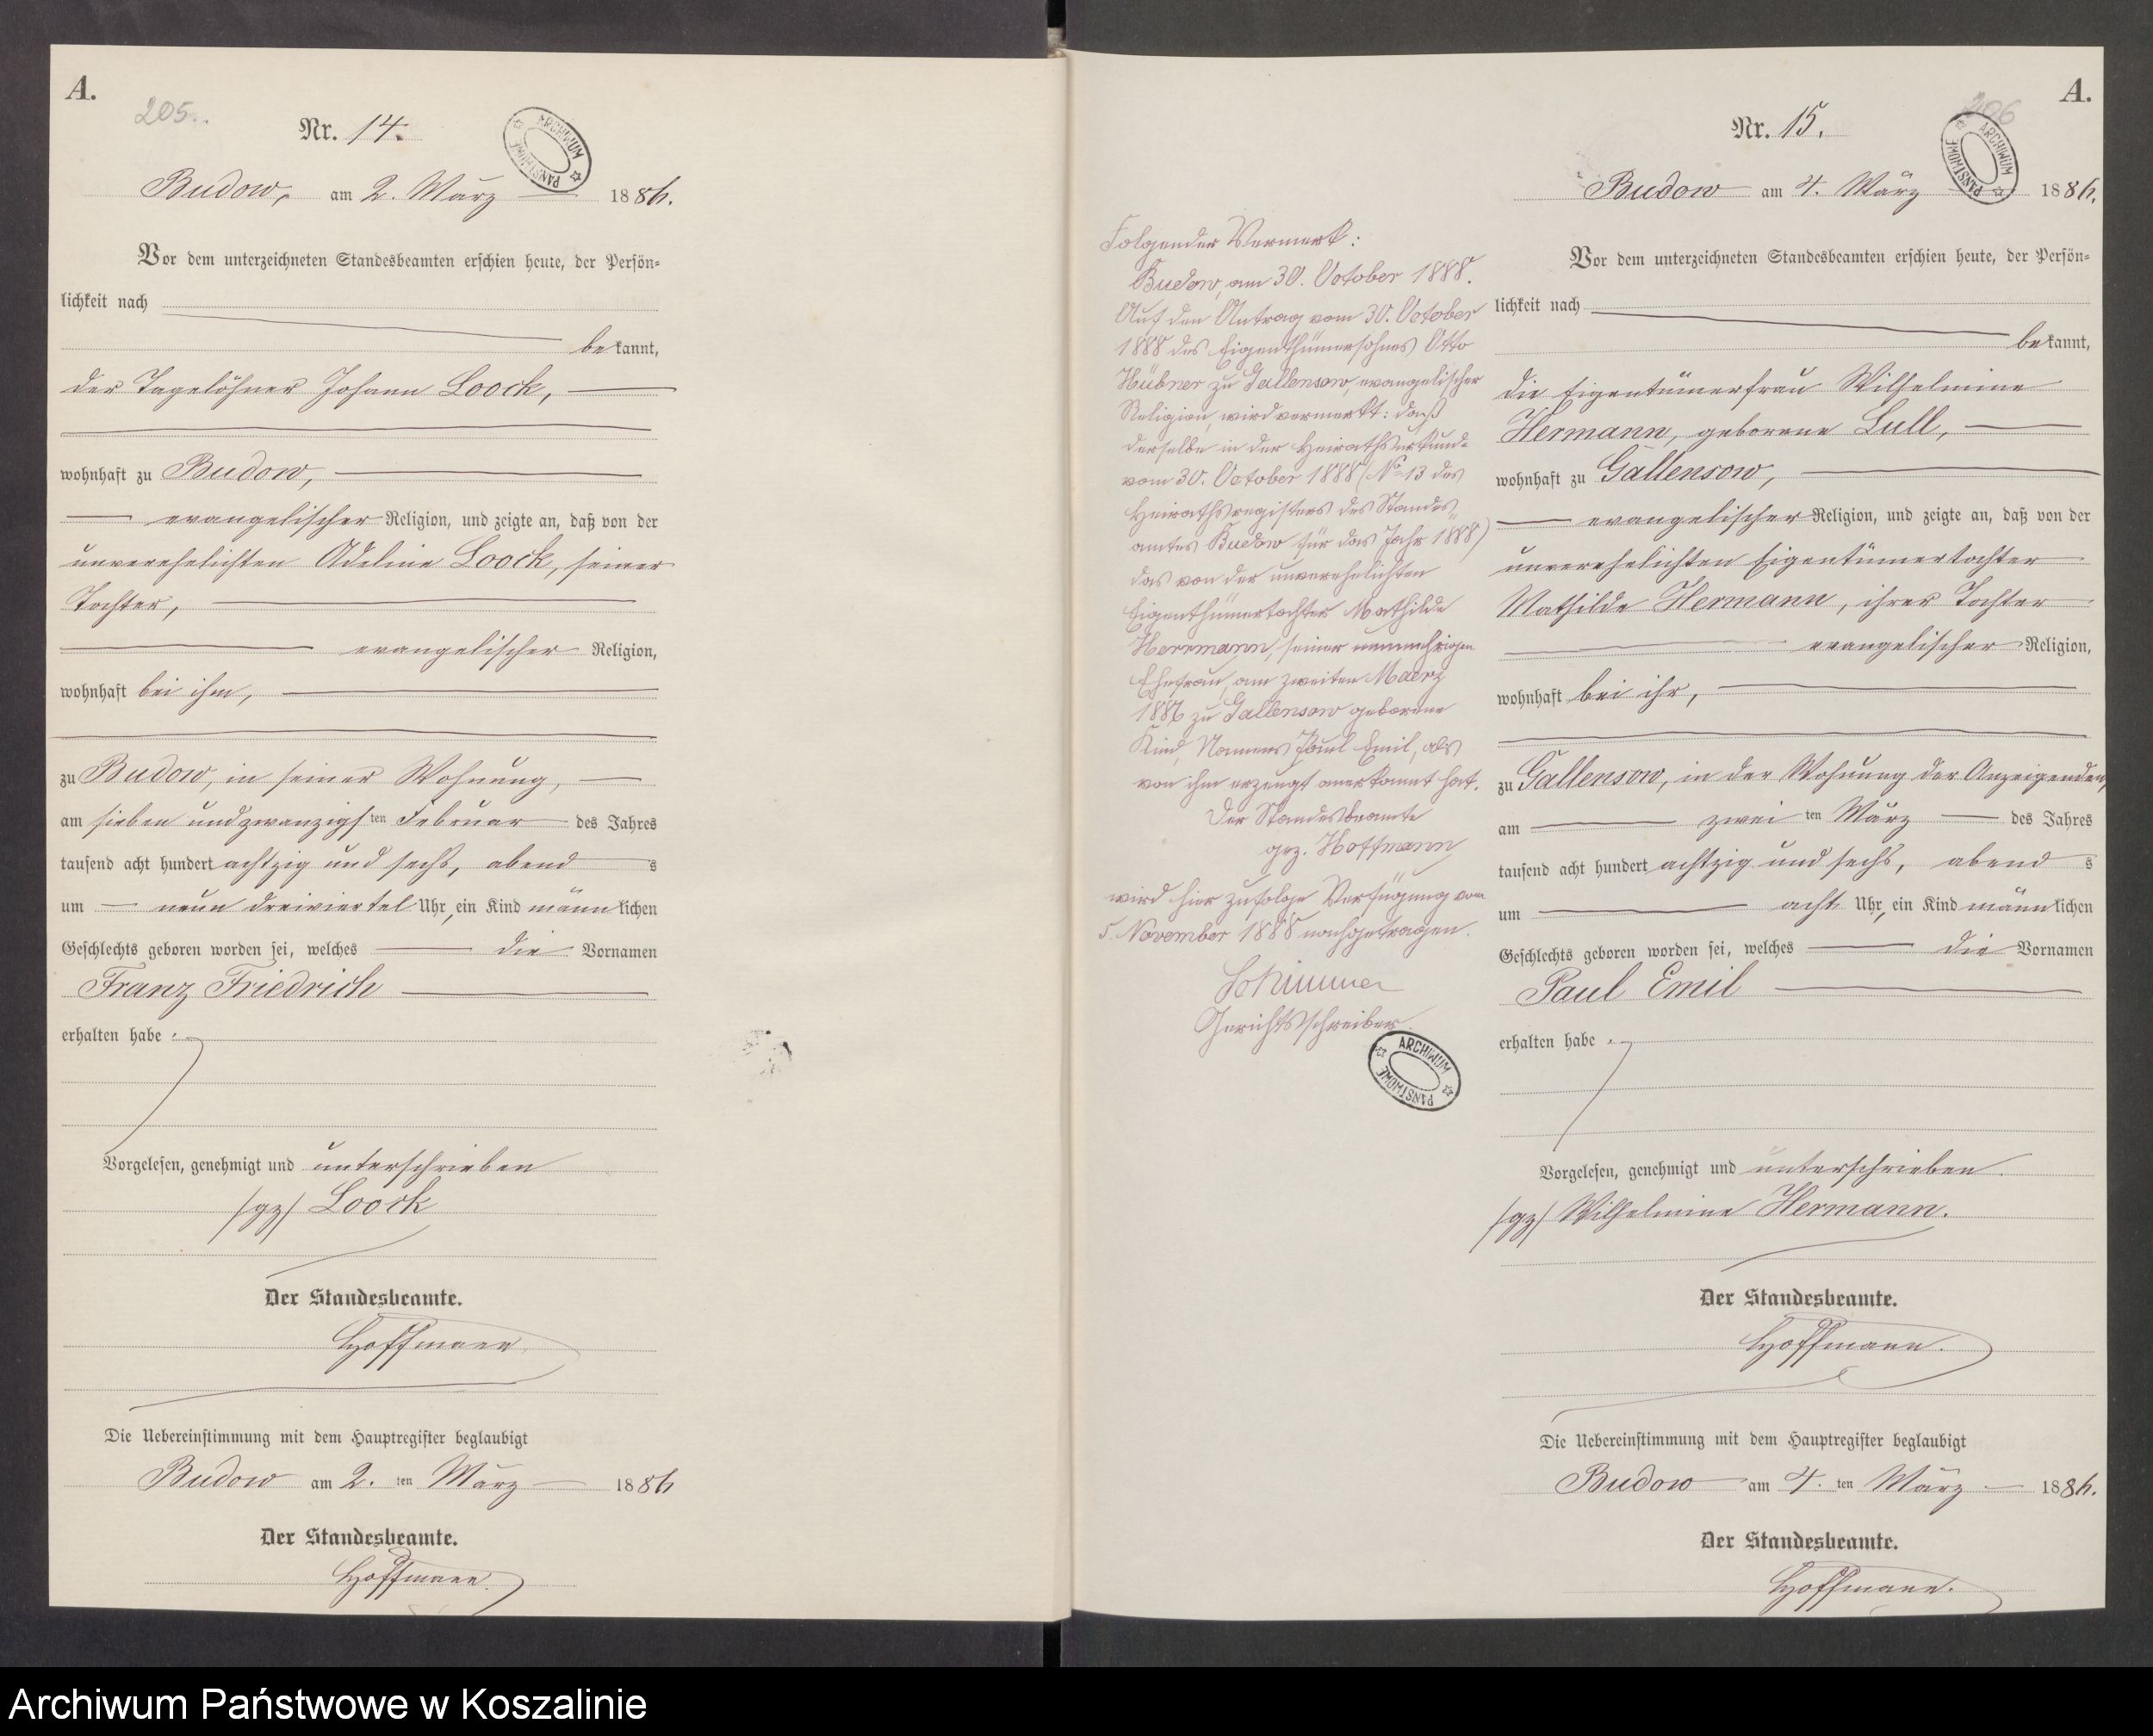 A.
205.
Nr. 14.
ARCHIWUM PAŃSTWOWE
Budow, am 2. März 1886.
Vor dem unterzeichneten Standesbeamten erschien heute, der Persön-
lichkeit nach
bekannt,
der Tagelöhner Johann Loock,
wohnhaft zu Budow,
evangelischer Religion, und zeigte an, daß von der
unverehelichten Adeline Loock, seiner
Tochter,
evangelischer Religion,
wohnhaft bei ihm,
zu Budow, in seiner Wohnung,
am sieben und zwanzigsten Februar des Jahres
tausend acht hundert achtzig und sechs, abends
um neun dreiviertel Uhr, ein Kind männlichen
Geschlechts geboren worden sei, welches die Vornamen
Franz Friedrich
erhalten habe.
Vorgelesen, genehmigt und unterschrieben
/gz/ Loock
Der Standesbeamte.
Hoffmann.
Die Uebereinstimmung mit dem Hauptregister beglaubigt
Budow am 2. ten März 1886
Der Standesbeamte.
Hoffmann.
Folgender Vermerk:
Budow, am 30. October 1888.
Auf den Antrag vom 30. October
1888 des Eigenthümersohnes Otto
Hübner zu Gallensow, evangelischer
Religion, wird vermerkt: daß
derselbe in der Heirathsurkunde
vom 30. October 1888 (No 13 des
Heirathsregisters des Standes-
amtes Budow für das Jahr 1888)
das von der unverehelichten
Eigenthümertochter Mathilde
Herrmann, seiner nunmehrigen
Ehefrau, am zweiten Maerz
1886 zu Gallensow geborene
Kind, Namens Paul Emil, als
von ihm erzeugt anerkannt hat.
Der Standesbeamte
gez. Hoffmann
wird hier zufolge Verfügung vom
5. November 1888 nachgetragen.
Gerichtsschreiber.
ARCHIWUM PAŃSTWOWE
A.
206
Nr. 15.
ARCHIWUM PAŃSTWOWE
Budow am 4. März 1886.
Vor dem unterzeichneten Standesbeamten erschien heute, der Persön-
lichkeit nach
bekannt,
die Eigentümerfrau Wilhelmine
Hermann, geborene Lull,
wohnhaft zu Gallensow,
evangelischer Religion, und zeigte an, daß von der
unverehelichten Eigentümertochter
Mathilde Hermann, ihrer Tochter
evangelischer Religion,
wohnhaft bei ihr,
zu Gallensow, in der Wohnung der Anzeigenden,
am zweiten März des Jahres
tausend acht hundert achtzig und sechs, abends
um acht Uhr, ein Kind männlichen
Geschlechts geboren worden sei, welches die Vornamen
Paul Emil
erhalten habe.
Vorgelesen, genehmigt und unterschrieben.
/gz/ Wilhelmine Hermann.
Der Standesbeamte.
Hoffmann.
Die Uebereinstimmung mit dem Hauptregister beglaubigt
Budow am 4. ten März 1886.
Der Standesbeamte.
Hoffmann.
Archiwum Państwowe w Koszalinie